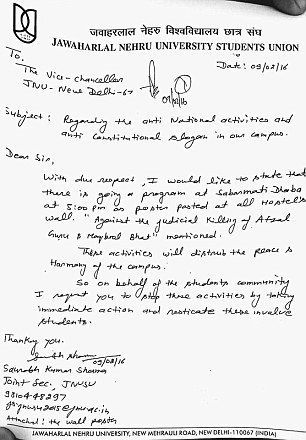 जवाहरलाल नेहरू विश्वविद्यालय छात्र संघ
JAWAHARLAL NEHRU UNIVERSITY STUDENTS UNION
To,
Date: 09/02/16
The Vice-Chancellor
JNU- New Delhi-67
09/02/16
Subject: Regarding the anti National activities and
anti Constitutional slogan in our campus.
Dear Sir,
With due respect, I would like to state that
there is going a program at Sabarmati Dhaba
at 5:00 pm as poster pasted at all Hostels
wall. "Against the judicial Killing of Afzal
Guru & Maqbool Bhat" mentioned.
These activities will disturb the peace &
Harmony of the campus.
So on behalf of the students community
I request you to stop these activities by taking
immediate action and rusticate these involve
students.
Thanking you.
09/02/16
Saurabh Kumar Sharma
Joint Sec. JNUSU
9810448297
Attached: the wall poster
JAWAHARLAL NEHRU UNIVERSITY, NEW MEHRAULI ROAD, NEW DELHI-110067 (INDIA)